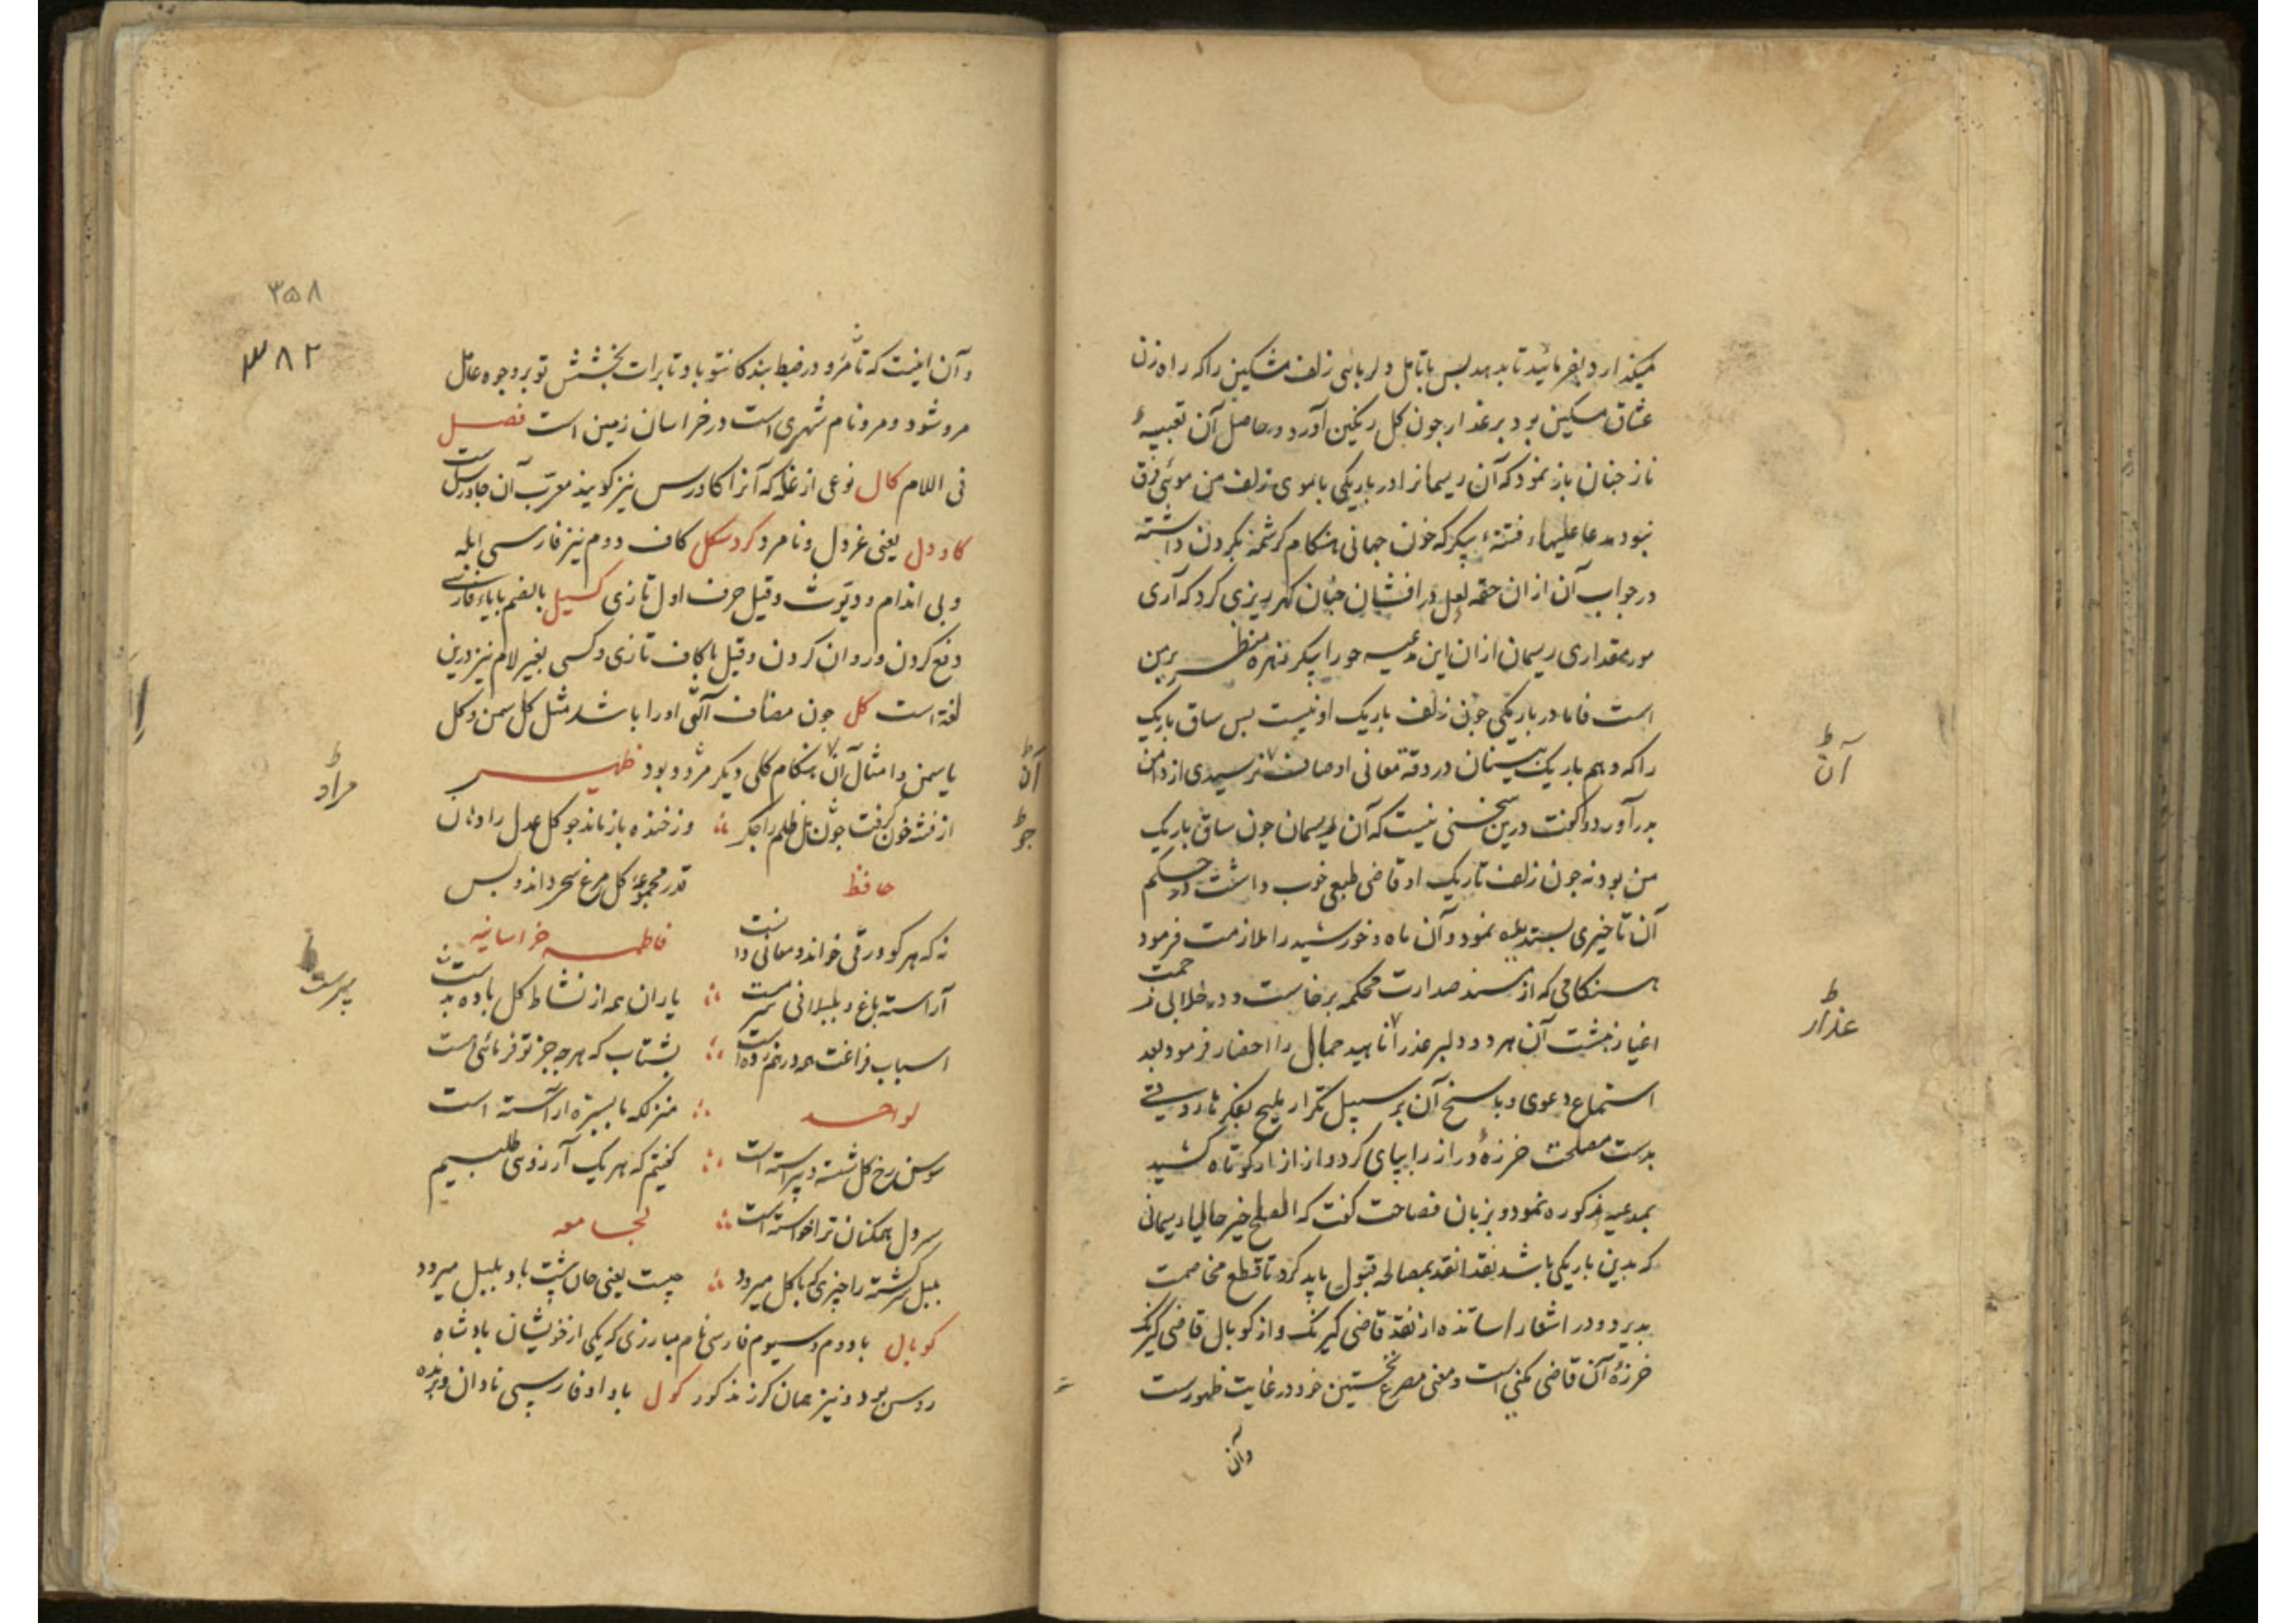 میگذارد بفرمائید تا بدهد پس با تامل دلربائی زلف مشکین را که راه زن
عشاق مسکین بود بر عذار چون گل رنگین آورد و حاصل آن تعبیهٔ
ناز چنان باز نمود که آن ریسمانرا در باریکی با موی زلف من موئی فرق
نبود مدعا علیها فتنه پیکر که خون جهانی هنگام کرشمه بگردن داشته
در جواب آن ازان حقه لعل در افشان چنان گهر ریزی کرد که آری
مقداری ریسمان ازان این مدعیه حورا پیکر زهره منظر بر من
است فاما در باریکی چون زلف باریک او نیست بس ساق باریک
را که وهم باریک بینان در دقة معانی اوصاف نرسیدی از دامن
بدر آورد و گفت درین سخنی نیست که آن ریسمان چون ساق باریک
من بود نه چون زلف تاریک او قاضی طبعی خوب داشت در حکم
آن تاخیری پسندیده نمود و آن ماه و خورشید را ملازمت فرمود
هنگامی که از مسند صدارت محکمه برخاست و در خلا بی زحمت
اغیار نشست آن هر دو دلبر عذرا ناهید جمال را احضار فرمود بعد
استماع دعوی و پاسخ آن بر سبیل تکرار
بدست مصلحت خرزهٔ دراز را بپای کرد و از ازار کوتاه کشید
بمدعیه مذکوره نمود و بزبان فصاحت گفت که الصلح خیر حالیا ریسمانی
که بدین باریکی باشد نقدا نقد بمصالحه قبول باید کرد تا قطع مخاصمت
پدیرد و در اشعار اساتذه از نقد قاضی کیرنک و از کوپال قاضی کیرنک
خرزهٔ آن قاضی مکنی است و معنی مصرع نخستین خود در غایت ظهورست
وآن
آن
عذار
۳۵۸
۳۸۲
و آن اینست که تا مرو در ضبط بندگانتو باد تا برات بخشش تو بر وجوه عامل
مرو شود و مرو نام شهری است در خراسان زمین است فصل
فی اللام کال نوعی از غله که آنرا کاورس نیز گویند معرب آن جاورس است
کاودل یعنی غردل و نامرد کردسکل کاف دوم نیز فارسی ابله
و بی اندام و دیوث و قیل حرف اول تازی کسیل بالضم با یاء فارسی
دفع کردن و روان کردن و قیل با کاف تازی و کسی بغیر لام نیز درین
لغة است کل چون مضاف الیه او را باشد مثل کل سمن و کل
یاسمن و امثال آن هنگام کلی دیگر مژده بود ظهیر
از فتنه خون گرفت چون دل ظلم را جگر وز خنده باز ماند چو گل عدل را دهان
حافظ قدر مجموعهٔ گل مرغ سحر داند و بس
نه که هر کو ورقی خواند معانی دانست فاطمه خراسانیه
آراسته باغ و بلبلانی سرمست یاران همه از نشاط گل باده بدست
اسباب فراغت همه درهم زده است بشتاب که هر چه جز تو فرمائی است
لواحد منزلگه ما بسبزه آراسته است
سوسن رخ گل شسته و پیراسته است گفتیم که هر یک آرزوی طلبیم
سر دل همکنان ترا خواسته است لجامعه
بلبل سرگشته را چیزی که با گل میرود چیست یعنی حال پشت باد بلبل میرود
کوبال با دوم و سیوم فارسی نام مبارزی که یکی از خویشان بادشاه
روس بود و نیز همان کرز مذکور کول با واو فارسی نادان و برنده
آن
مراد
پرست